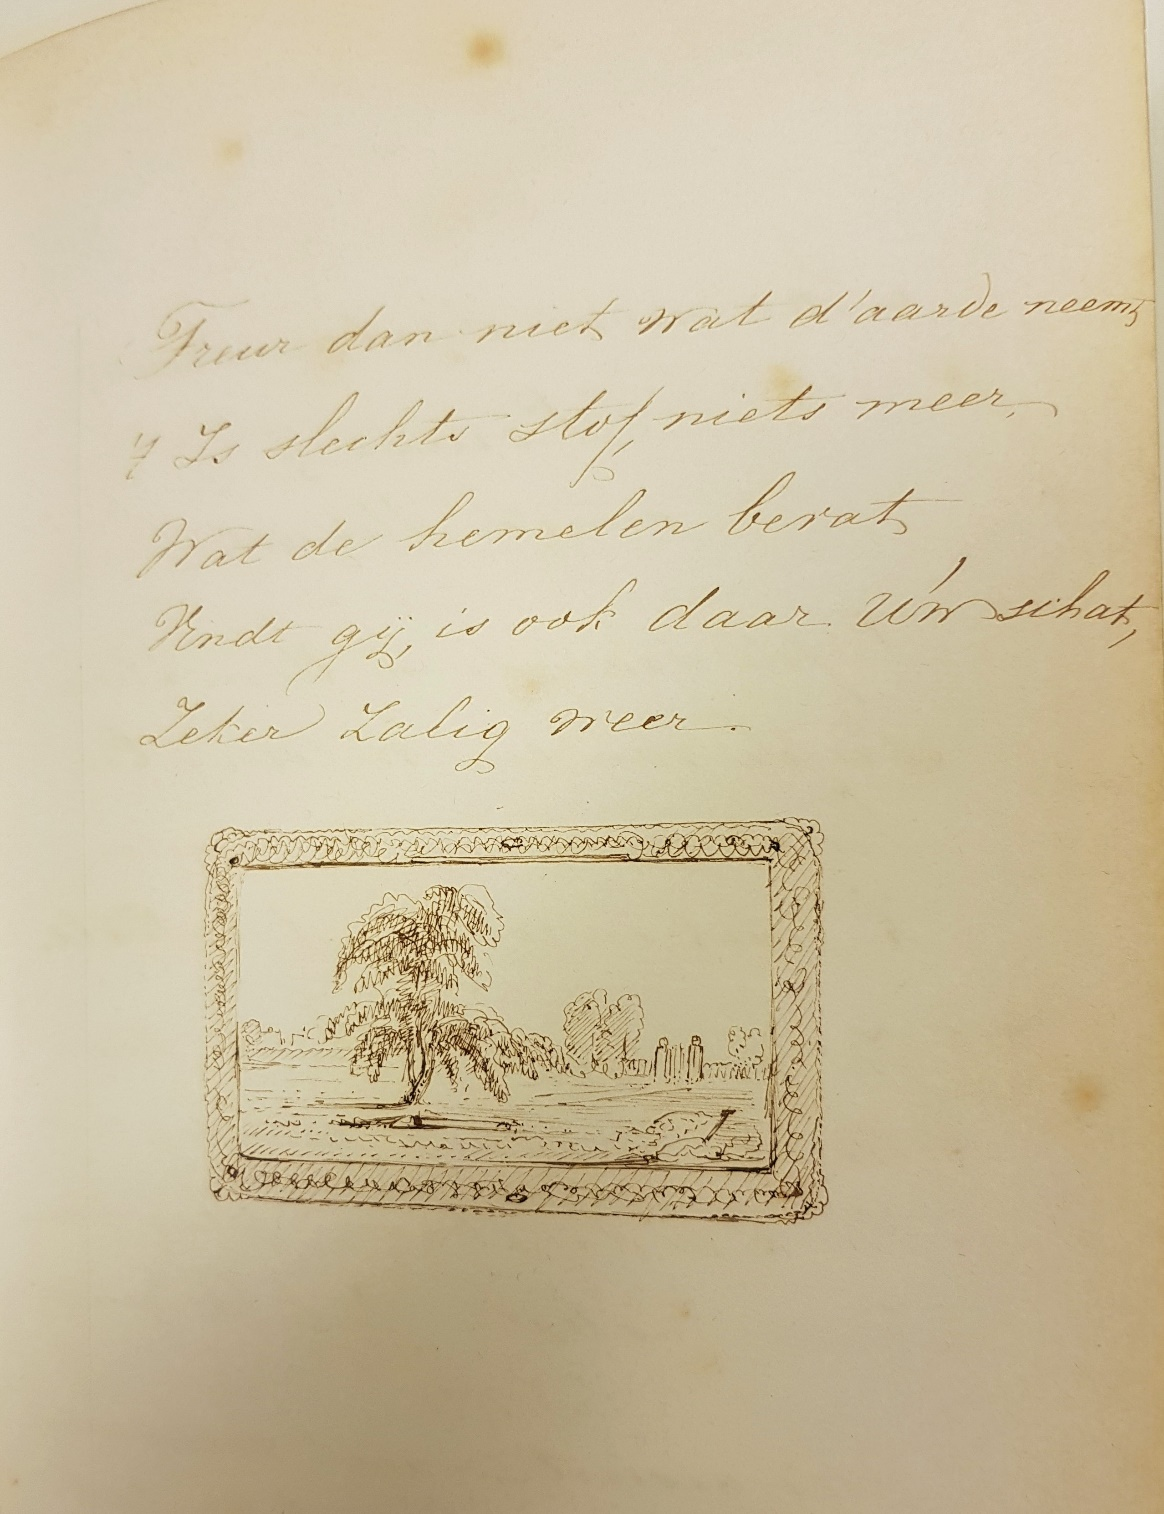 Treur dan niet wat d'aarde neemt
't Is slechts stof, niets meer,
Wat de hemelen bevat
Vindt gij, is ook daar Uw schat,
Zeker Zalig weer.